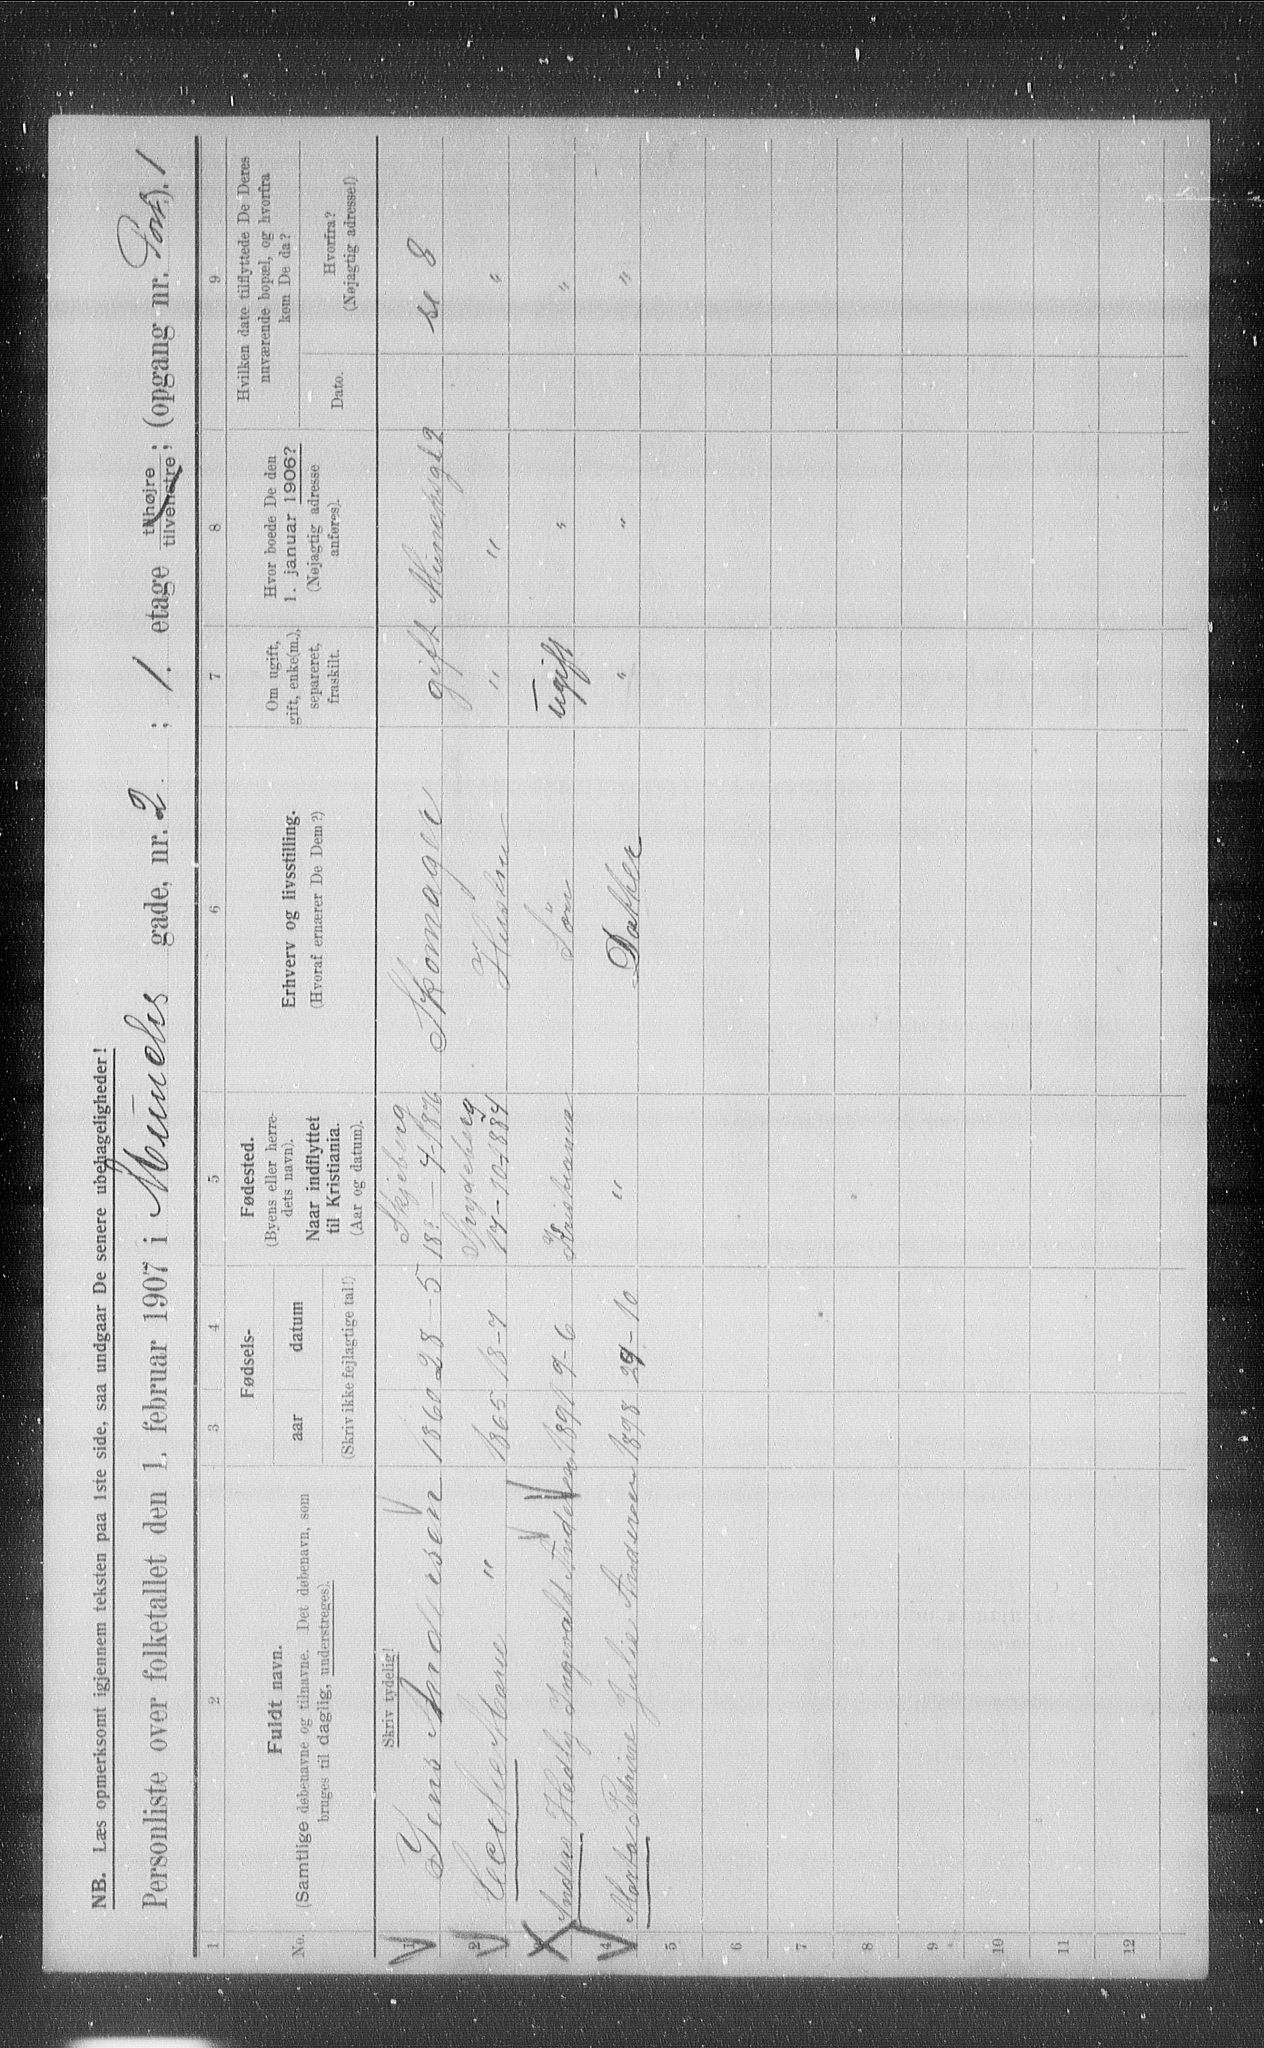 NB. Læs opmerksomt igjennem teksten paa 1ste side, saa undgaar De senere ubehageligheder!
Personliste over folketallet den 1. februar 1907 i Munchs gade, nr. 2 ; 1. etage tilhøjre ; tilvenstre ; (opgang nr. Port). 1
1 2 3 4 5 6 7 8 9
No.
Fuldt navn.
(Samtlige døbenavne og tilnavne. Det døbenavn, som
bruges til daglig, understreges).
Fødsels-
aar datum
(Skriv ikke fejlagtige tal!)
Fødested.
(Byens eller herre-
dets navn).
Naar indflyttet
til Kristiania.
(Aar og datum).
Erhverv og livsstilling.
(Hvoraf ernærer De Dem?)
Om ugift,
gift, enke(m.),
separeret,
fraskilt.
Hvor boede De den
1. januar 1906?
(Nøjagtig adresse
anføres).
Hvilken date tilflyttede De Deres
nuværende bopæl, og hvorfra
kom De da?
Dato.
Hvorfra?
(Nøjagtig adresse!)
Skriv tydelig!
1 Jens Andersen 1860 28-5 Skjeberg 4-1876 Skomager gift Munchsgd 2 se 8
2 Cecilie Marie " 1865 18-7 Spydeberg 17-10-1884 Hustru " " "
3 Anders Hedly Ingevald Andersen 1891 9-6 Kristiania Søn ugift " "
4 Marta Petrine Julie Andersen 1898 29-10 " Datter " " "
5
6
7
8
9
10
11
12